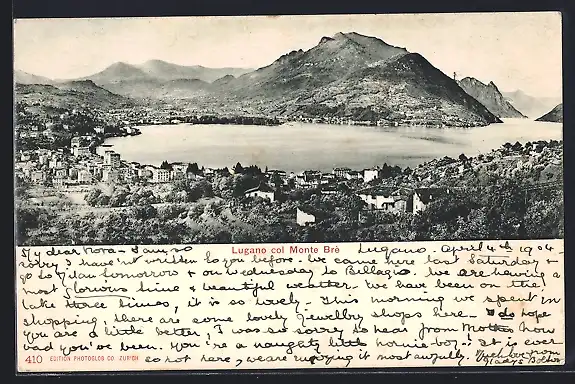 Lugano col Monte Brè
Lugano. April 4th 1904
My dear Nora - I am so
sorry I haven't written to you before. We came here last Saturday &
go to Milan tomorrow & on Wednesday to Bellagio. We are having a
most glorious time & beautiful weather. We have been on the
lake three times, it is so lovely. This morning we spent in
shopping, there are some lovely jewellry shops here. I do hope
you are a little better. I was so sorry to hear from how
bad you've been. You're a naughty little It is ever
so hot here, we are enjoying it most awfully. Much love from
Gladys
410 EDITION PHOTOGLOB CO. ZURICH